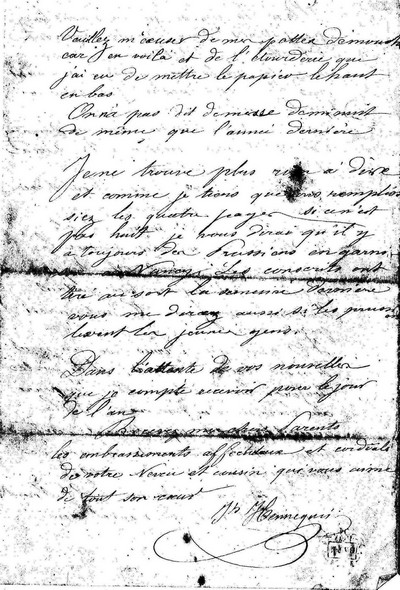 Veuillez m'excuser de mes pattes de mouche
car j'en voilà et de l'étourderie que
j'ai eu de mettre le papier le haut
en bas
On n'a pas dit de messe de minuit
de même que l'année dernière
Je ne trouve plus rien à dire
et comme je tiens que vous remplis
siez les quatre pages si ce n'est
pas huit je vous dirai qu'il y
a toujours des Prussiens en garni
Nancy. Les conscrits ont
tiré au sort la semaine dernière
vous me direz aussi si les prussiens
lèvent les jeunes gens.
Dans l'attente de vos nouvelles
que je compte recevoir pour le jour
de l'an
Recevez mes chers Parents
les embrassements affectueux et cordials
de votre Neveu et cousin qui vous aime
de tout son cœur
Hennequin